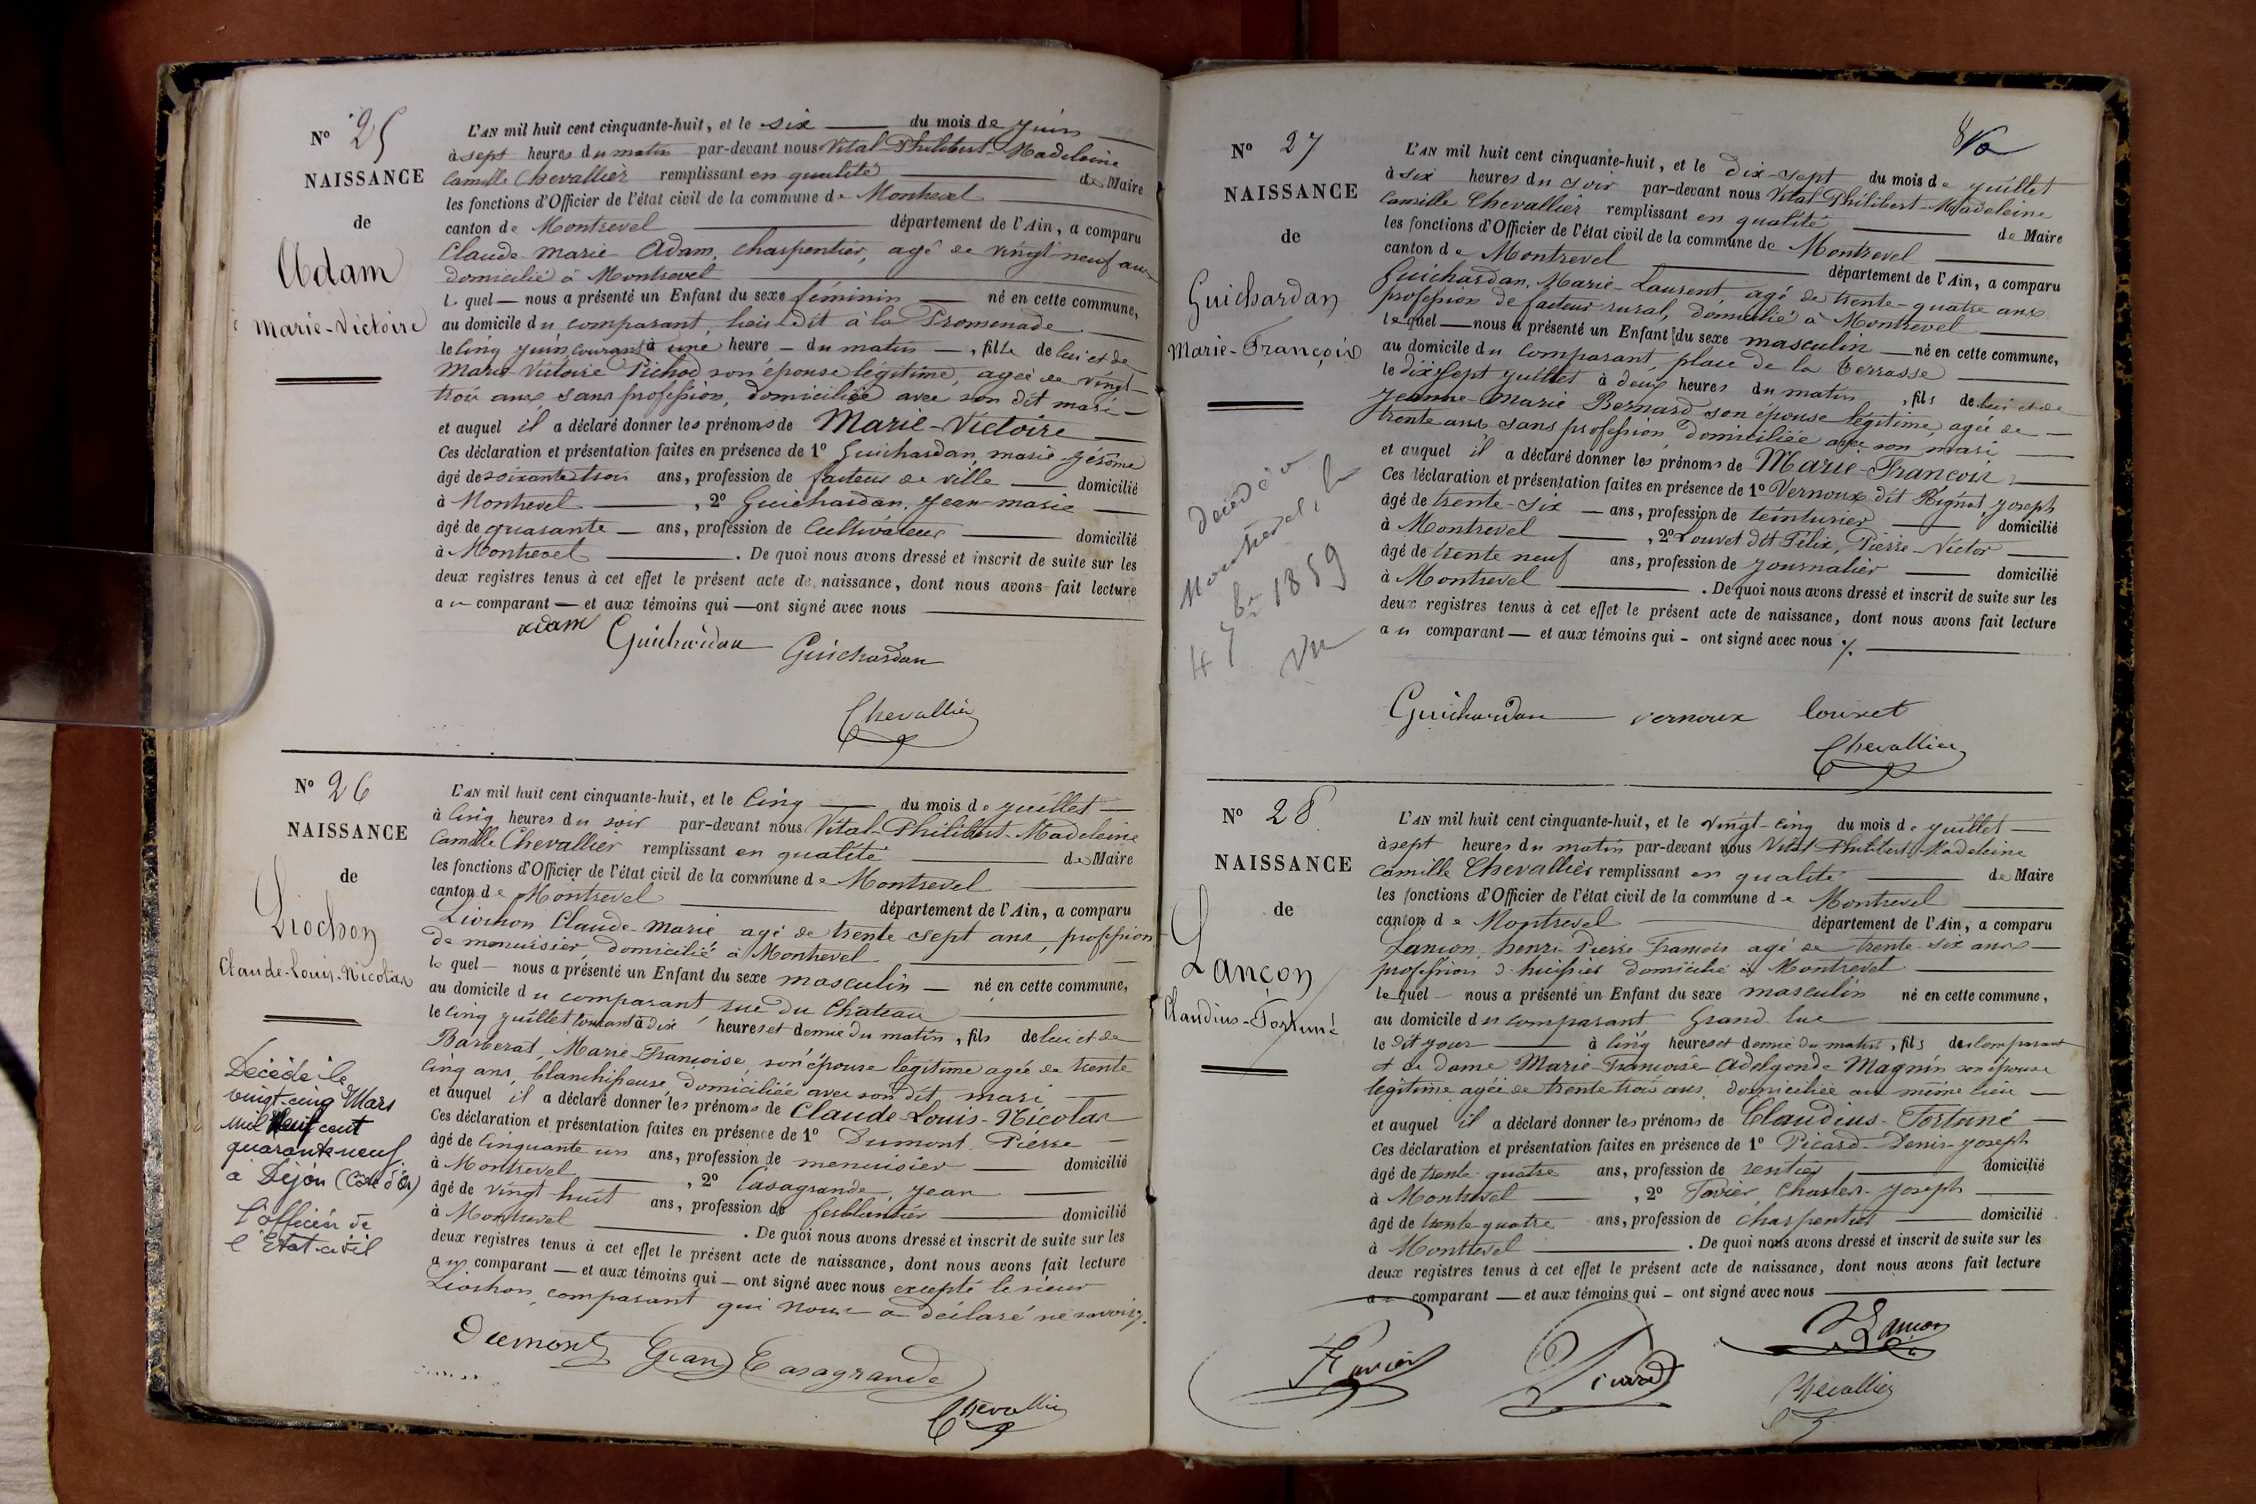 N° 25
NAISSANCE
de
Adam
Marie-Victoire
L'AN mil huit cent cinquante-huit, et le six du mois de juin
à sept heures du matin par-devant nous Vital-Philibert-Madeleine
Camille Chevallier remplissant en qualité de Maire
les fonctions d'Officier de l'état civil de la commune de Montrevel
canton de Montrevel département de l'Ain, a comparu
Claude Marie Adam, charpentier, agé de vingt-neuf ans
domicilié à Montrevel
lequel nous a présenté un Enfant du sexe féminin né en cette commune,
au domicile du comparant, lieu dit à la Promenade
le cinq juin courant à une heure du matin, fille de lui et de
Marie Victoire Pichod son épouse légitime, agée de vingt-
trois ans sans profession, domiciliée avec son dit mari
et auquel il a déclaré donner les prénoms de Marie-Victoire
Ces déclaration et présentation faites en présence de 1° Guichardan, marie-jérôme
âgé de soixante trois ans, profession de facteur de ville domicilié
à Montrevel, 2° Guichardan, Jean-marie
âgé de quarante ans, profession de Cultivateur domicilié
à Montrevel. De quoi nous avons dressé et inscrit de suite sur les
deux registres tenus à cet effet le présent acte de naissance, dont nous avons fait lecture
au comparant et aux témoins qui ont signé avec nous
adam Guichardan Guichardan
Chevallier
N° 26
NAISSANCE
de
Liochon
Claude-Louis-Nicolas
Décédé le
vingt-cinq Mars
mil neuf cent
quarante neuf
à Dijon (Côte d'Or)
l'officier de
l'Etat-civil
L'AN mil huit cent cinquante-huit, et le cinq du mois de juillet
à cinq heures du soir par-devant nous Vital-Philibert-Madeleine
Camille Chevallier remplissant en qualité de Maire
les fonctions d'Officier de l'état civil de la commune de Montrevel
canton de Montrevel département de l'Ain, a comparu
Liochon Claude-Marie agé de trente sept ans, profession
de menuisier, domicilié à Montrevel
lequel nous a présenté un Enfant du sexe masculin né en cette commune,
au domicile du comparant rue du Chateau
le cinq juillet courant à dix heures et demie du matin, fils de lui et de
Barberat, Marie-Françoise, son épouse légitime agée de trente
cinq ans, blanchisseuse, domiciliée avec son dit mari
et auquel il a déclaré donner les prénoms de Claude-Louis-Nicolas
Ces déclaration et présentation faites en présence de 1° Dumont Pierre
âgé de cinquante un ans, profession de menuisier domicilié
à Montrevel, 2° Casagrande, Jean
âgé de vingt huit ans, profession de ferblantier domicilié
à Montrevel. De quoi nous avons dressé et inscrit de suite sur les
deux registres tenus à cet effet le présent acte de naissance, dont nous avons fait lecture
au comparant et aux témoins qui ont signé avec nous excepté le sieur
Liochon, comparant qui nous a déclaré ne savoir
Dumont Gean Casagrande
Chevallier
N° 27
NAISSANCE
de
Guichardan
Marie-François
Décédé à
Montrevel, le
4 7bre 1859
L'AN mil huit cent cinquante-huit, et le dix-sept du mois de juillet
à six heures du soir par-devant nous Vital Philibert-Madeleine
Camille Chevallier remplissant en qualité de Maire
les fonctions d'Officier de l'état civil de la commune de Montrevel
canton de Montrevel département de l'Ain, a comparu
Guichardan, Marie-Laurent agé de trente-quatre ans
profession de facteur rural, domicilié à Montrevel
lequel nous a présenté un Enfant du sexe masculin né en cette commune,
au domicile du comparant, place de la Terrasse
le dix sept juillet à deux heures du matin, fils de lui et de
Jeanne-Marie Bernard son épouse légitime, agée de
trente ans sans profession, domiciliée avec son mari
et auquel il a déclaré donner les prénoms de Marie-François
Ces déclaration et présentation faites en présence de 1° Vernoux dit Rignat, joseph
âgé de trente-six ans, profession de teinturier domicilié
à Montrevel, 2° Louvet dit Félix, Pierre-Victor
âgé de trente neuf ans, profession de journalier domicilié
à Montrevel. De quoi nous avons dressé et inscrit de suite sur les
deux registres tenus à cet effet le présent acte de naissance, dont nous avons fait lecture
au comparant et aux témoins qui ont signé avec nous
Guichardan vernoux Louvet
Chevallier
N° 28
NAISSANCE
de
Lançon
Claudius-Fortuné
L'AN mil huit cent cinquante-huit, et le vingt-cinq du mois de juillet
à sept heures du matin par-devant nous Vital Philibert-Madeleine
Camille Chevallier remplissant en qualité de Maire
les fonctions d'Officier de l'état civil de la commune de Montrevel
canton de Montrevel département de l'Ain, a comparu
Lancon, henri Pierre François agé de trente-six ans
profession d'huissier domicilié à Montrevel
lequel nous a présenté un Enfant du sexe masculin né en cette commune,
au domicile du comparant Grand rue
le dit jour à cinq heures et demie du matin, fils du comparant
et de dame Marie-Françoise Adelgonde Magnin son épouse
légitime agée de trente trois ans, domiciliée au même lieu
et auquel il a déclaré donner les prénoms de Claudius-Fortuné
Ces déclaration et présentation faites en présence de 1° Picard-Denis-joseph
âgé de trente-quatre ans, profession de rentier domicilié
à Montrevel, 2° Favier, Charles-Joseph
âgé de trente-quatre ans, profession de charpentier domicilié
à Montrevel. De quoi nous avons dressé et inscrit de suite sur les
deux registres tenus à cet effet le présent acte de naissance, dont nous avons fait lecture
au comparant et aux témoins qui ont signé avec nous
Favier Picard Lancon
Chevallier